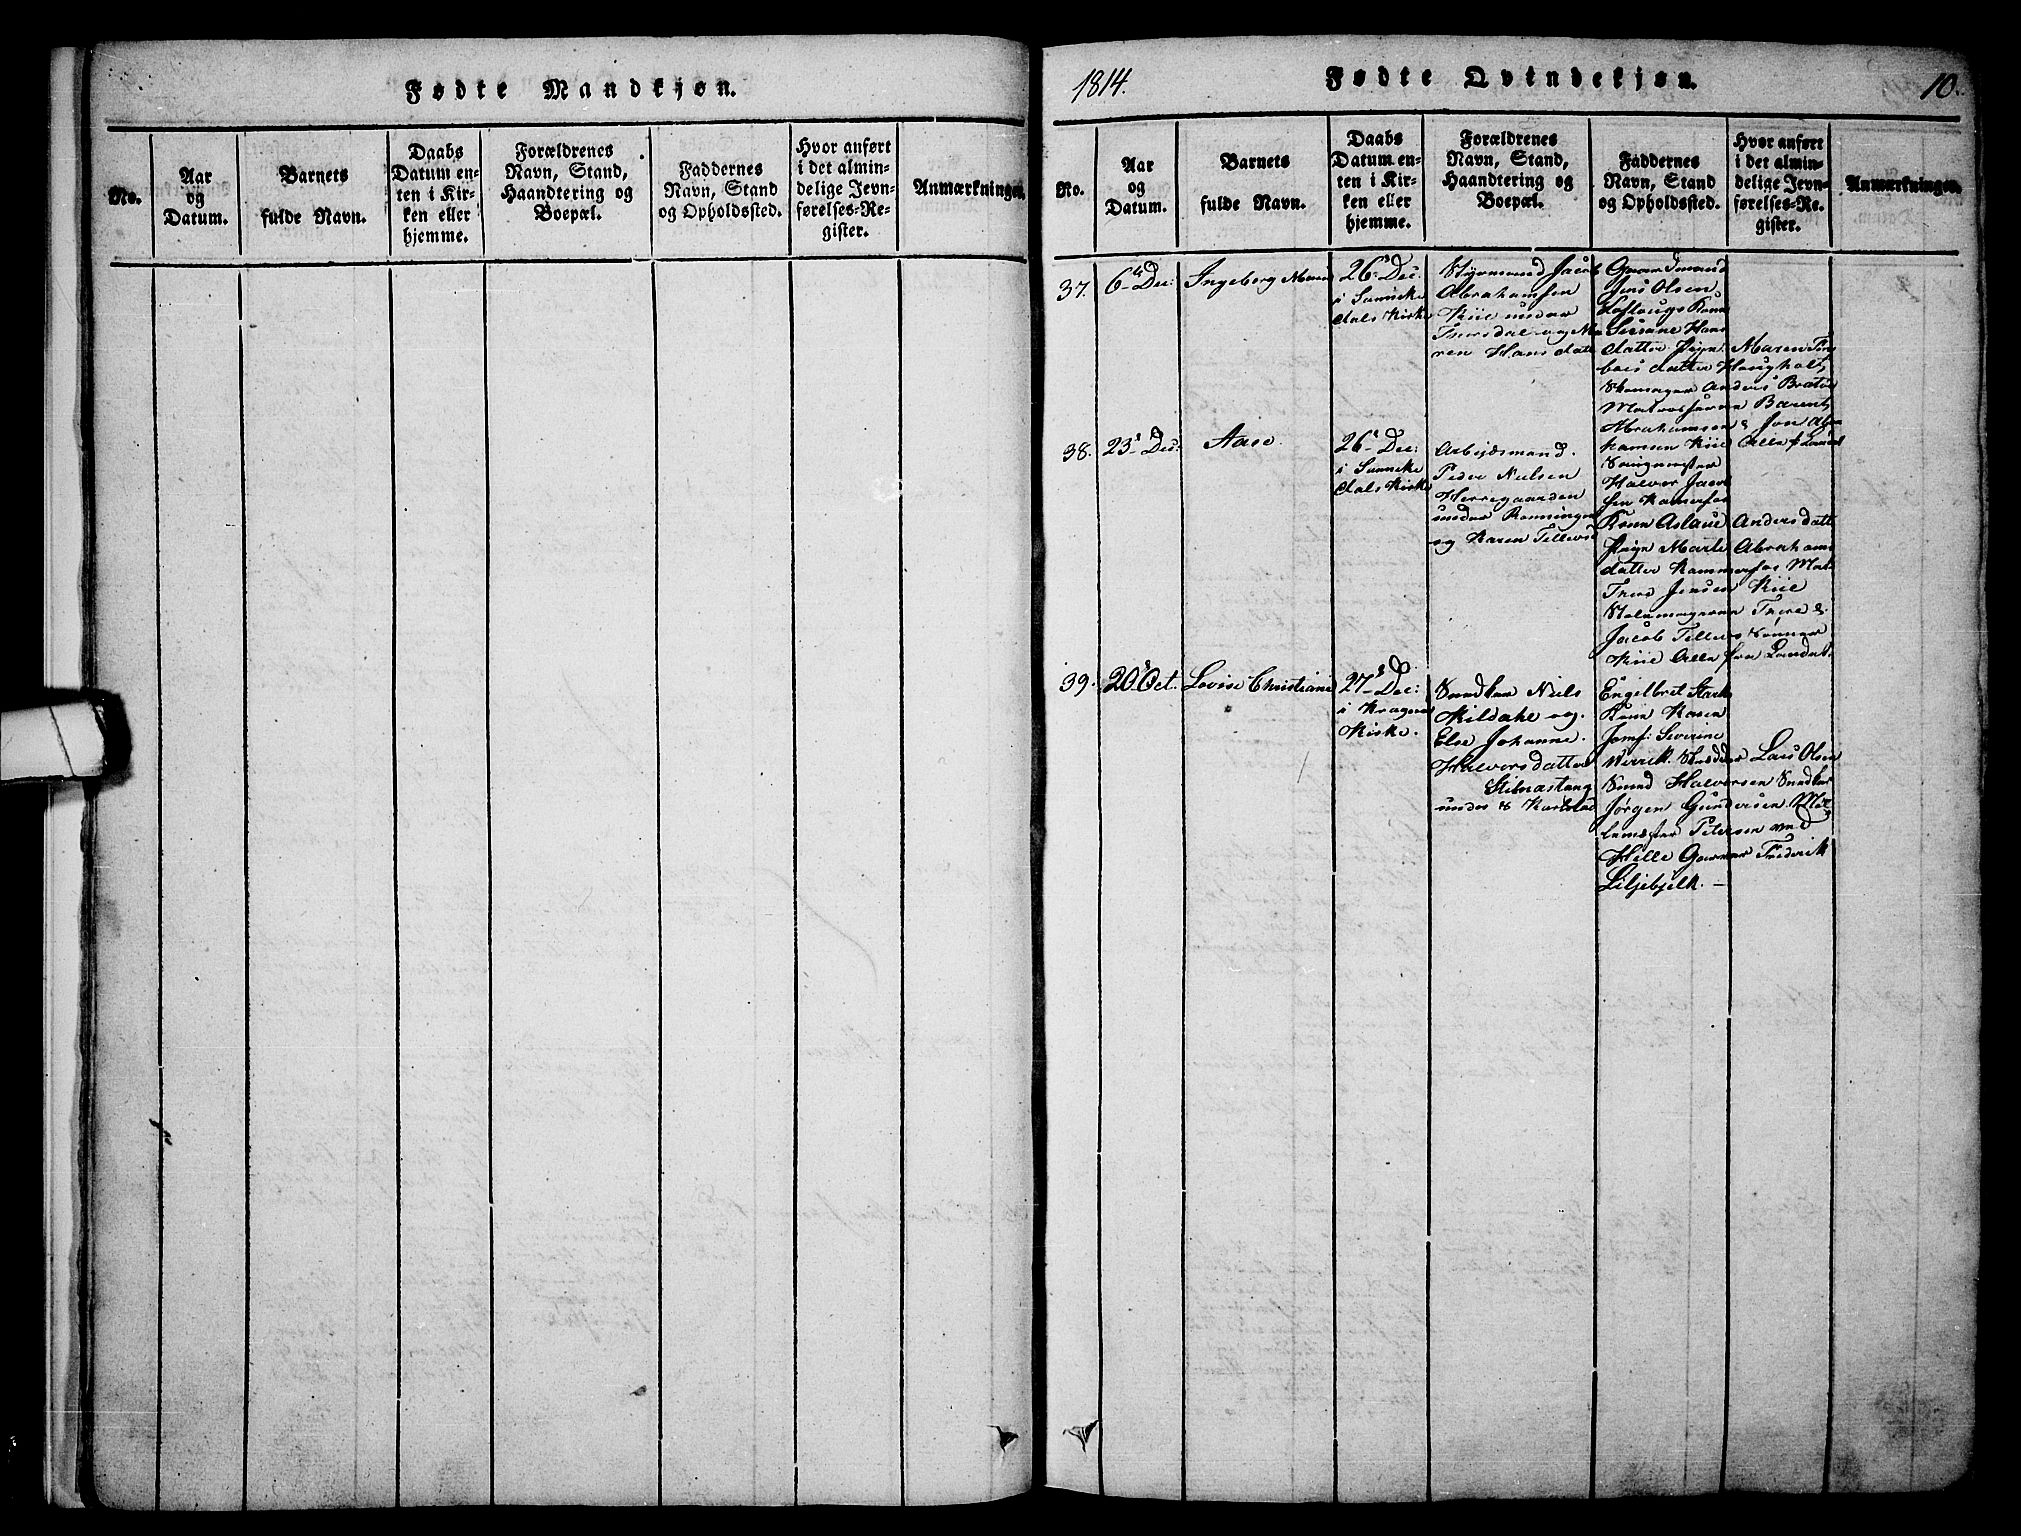 Fødte Mandkjøn.
No.
Aar
og
Datum.
Barnets
fulde Navn.
Daabs
Datum en-
ten i Kir-
ken eller
hjemme.
Forældrenes
Navn, Stand,
Haandtering og
Boepæl.
Faddernes
Navn, Stand
og Opholdssted.
Hvor anført
i det almin-
delige Jevn-
førelses-Re-
gister.
Anmærkninger.
1814.
Fødte Qvindekjøn.
10.
No.
Aar
og
Datum.
Barnets
fulde Navn.
Daabs
Datum en-
ten i Kir-
ken eller
hjemme.
Forældrenes
Navn, Stand,
Haandtering og
Boepæl.
Faddernes
Navn, Stand
og Opholdssted.
Hvor anført
i det almin-
delige Jevn-
førelses-Re-
gister.
Anmærkninger.
37.
6te Dec:
Ingeborg Maren
26 Dec:
i Sannike
dals Kirke
Styrmand Jacob
Abrahamsen
Kiil under
Thorsdal og Ma
ren Hansdatt
Gaardmand
Jens Olsen
Kone
Hans
datter Pign: Maren Tor
bors datter Hougholt,
Skomager Anders
Barent
Abrahamsen & Jon Abra
hamsen Kiil Alle f Landet
38.
23 Dec:
Aase
26 Dec:
i Sannike
dals Kirke
Arbejdsmand
Peder Nielsen
Herregaarden
under Rønningen
og Karen Tellevsd
Halvor Jacob
sen Kamerfos
Kone Aslaue Andersdatt
Pign Marte Abrahams
datter Kammerfos Mat
Thor Jensen Kiil
Thore &
Jacob Tellevs Sønner
Kiil Alle fra Landet.
39.
20 Oct.
Lovise Christiane
27 Dec:
i Kragerø
Kirke.
Snedker Niels
Kildahl og
Else Johanne
Halvorsdatter
Stilnastang
under
Engelbret Stark
Kone Karen
Jomf: Severine
Wirrik. Lars Olsen
Smed Halvorsen Snedker
Jørgen Gundersen
Petersen ved
Helle Frederik
Liljebjelk. –